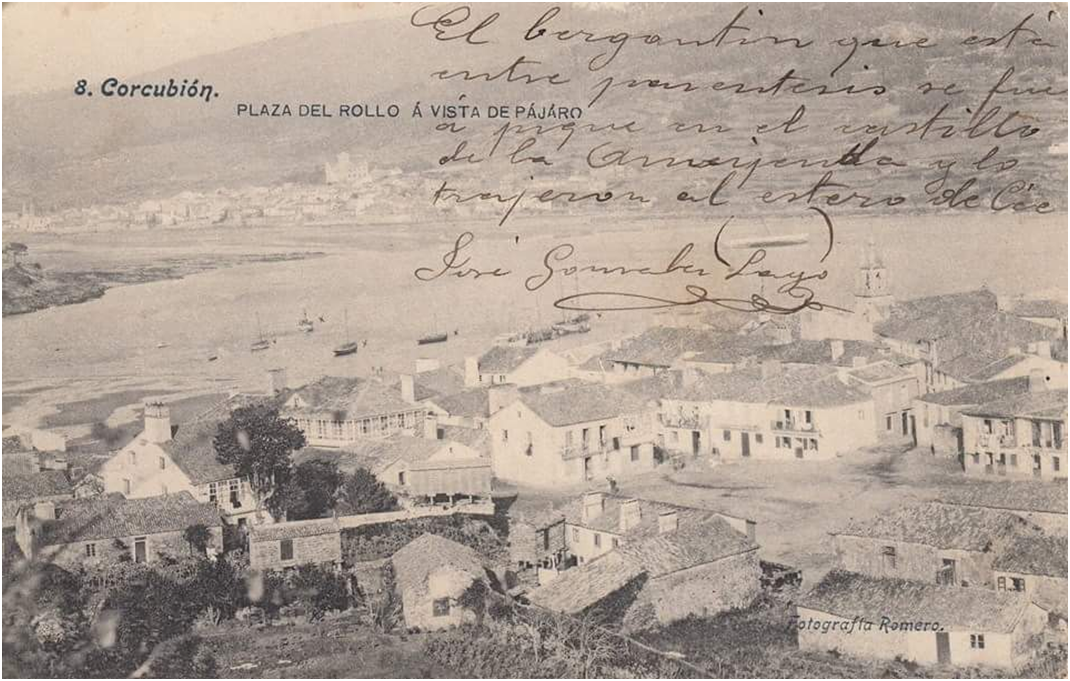 El bergantin que está
8. Corcubión.
entre parentesis se fue
PLAZA DEL ROLLO Á VISTA DE PÁJARO
a pique en el castillo
de la y lo
trajeron al estero de Cée
José Lago
Fotografía Romero.